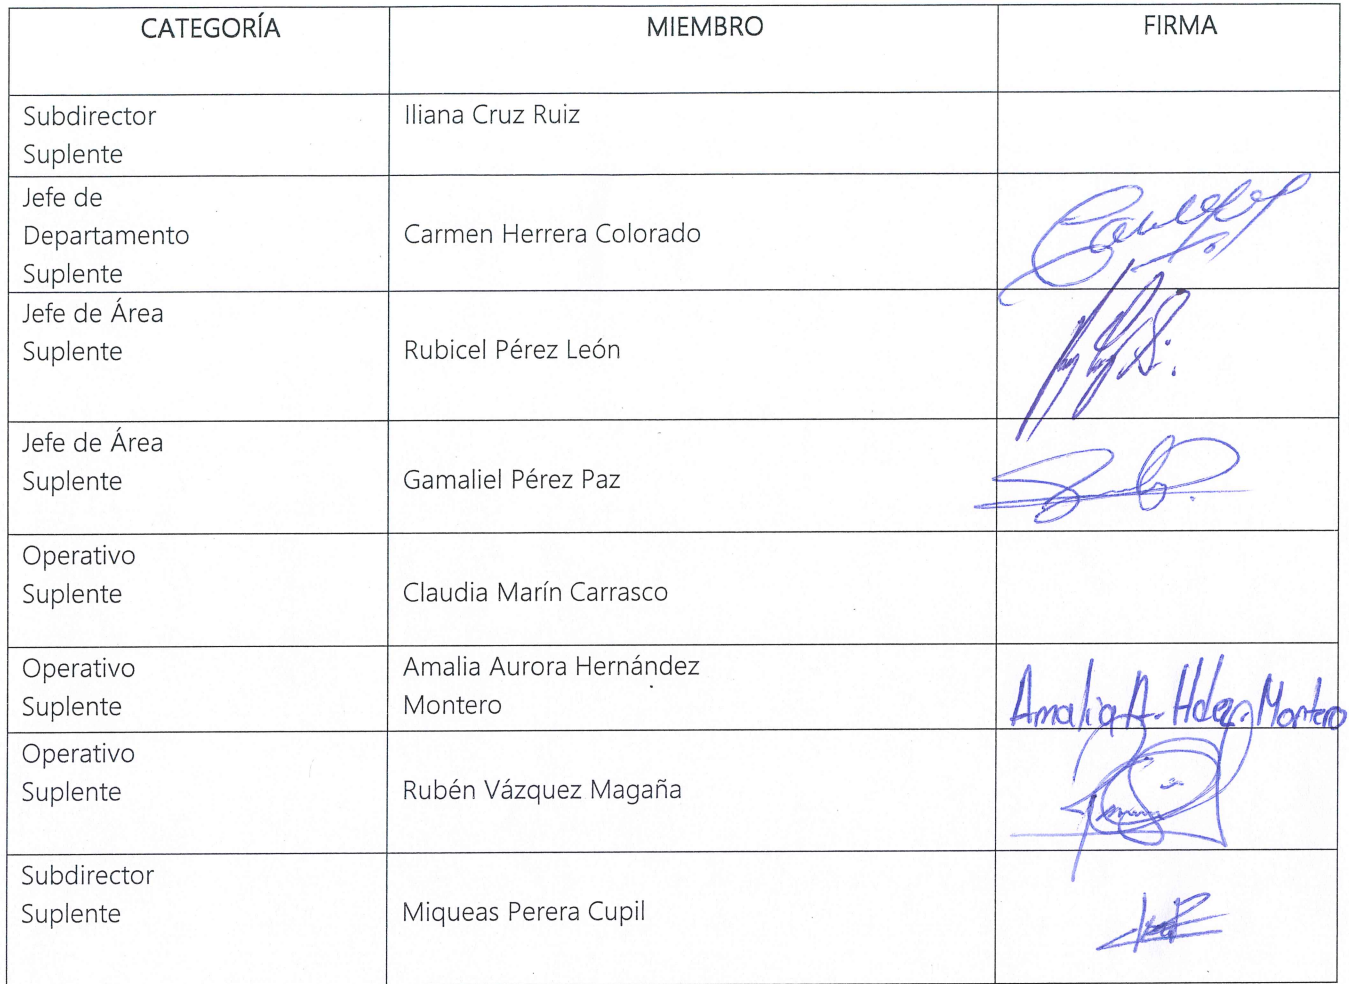 CATEGORÍA MIEMBRO FIRMA
Subdirector Iliana Cruz Ruiz
Suplente
Jefe de
Departamento Carmen Herrera Colorado
Suplente
Jefe de Área
Suplente Rubicel Pérez León
Jefe de Área
Suplente Gamaliel Pérez Paz
Operativo
Suplente Claudia Marín Carrasco
Operativo Amalia Aurora Hernández
Suplente Montero Amalia A. Hdez. Montero
Operativo
Suplente Rubén Vázquez Magaña
Subdirector
Suplente Miqueas Perera Cupil